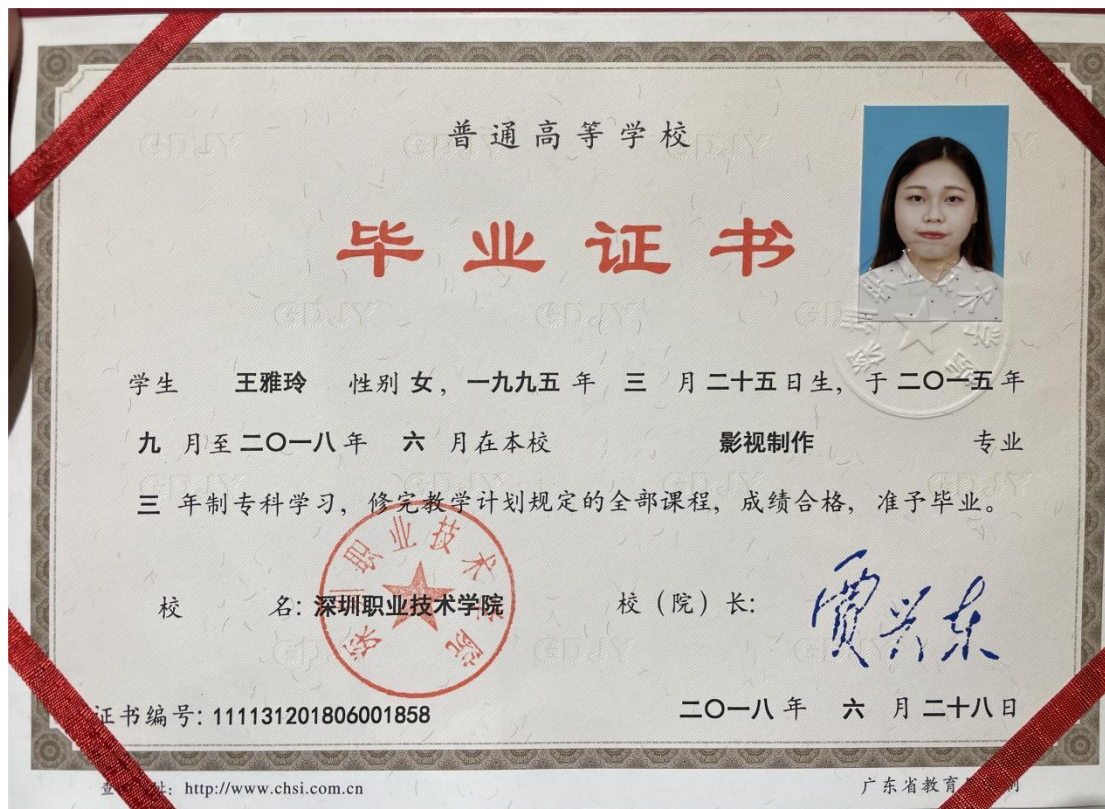 普通高等学校
毕业证书
学生 王雅玲 性别 女，一九九五 年 三 月 二十五 日生，于 二〇一五 年
九 月至 二〇一八 年 六 月在本校 影视制作 专业
三 年制专科学习，修完教学计划规定的全部课程，成绩合格，准予毕业。
深圳职业技术学院
校 名: 深圳职业技术学院 校（院）长: 贾兴东
证书编号: 111131201806001858 二〇一八 年 六 月 二十八 日
http://www.chsi.com.cn 广东省教育